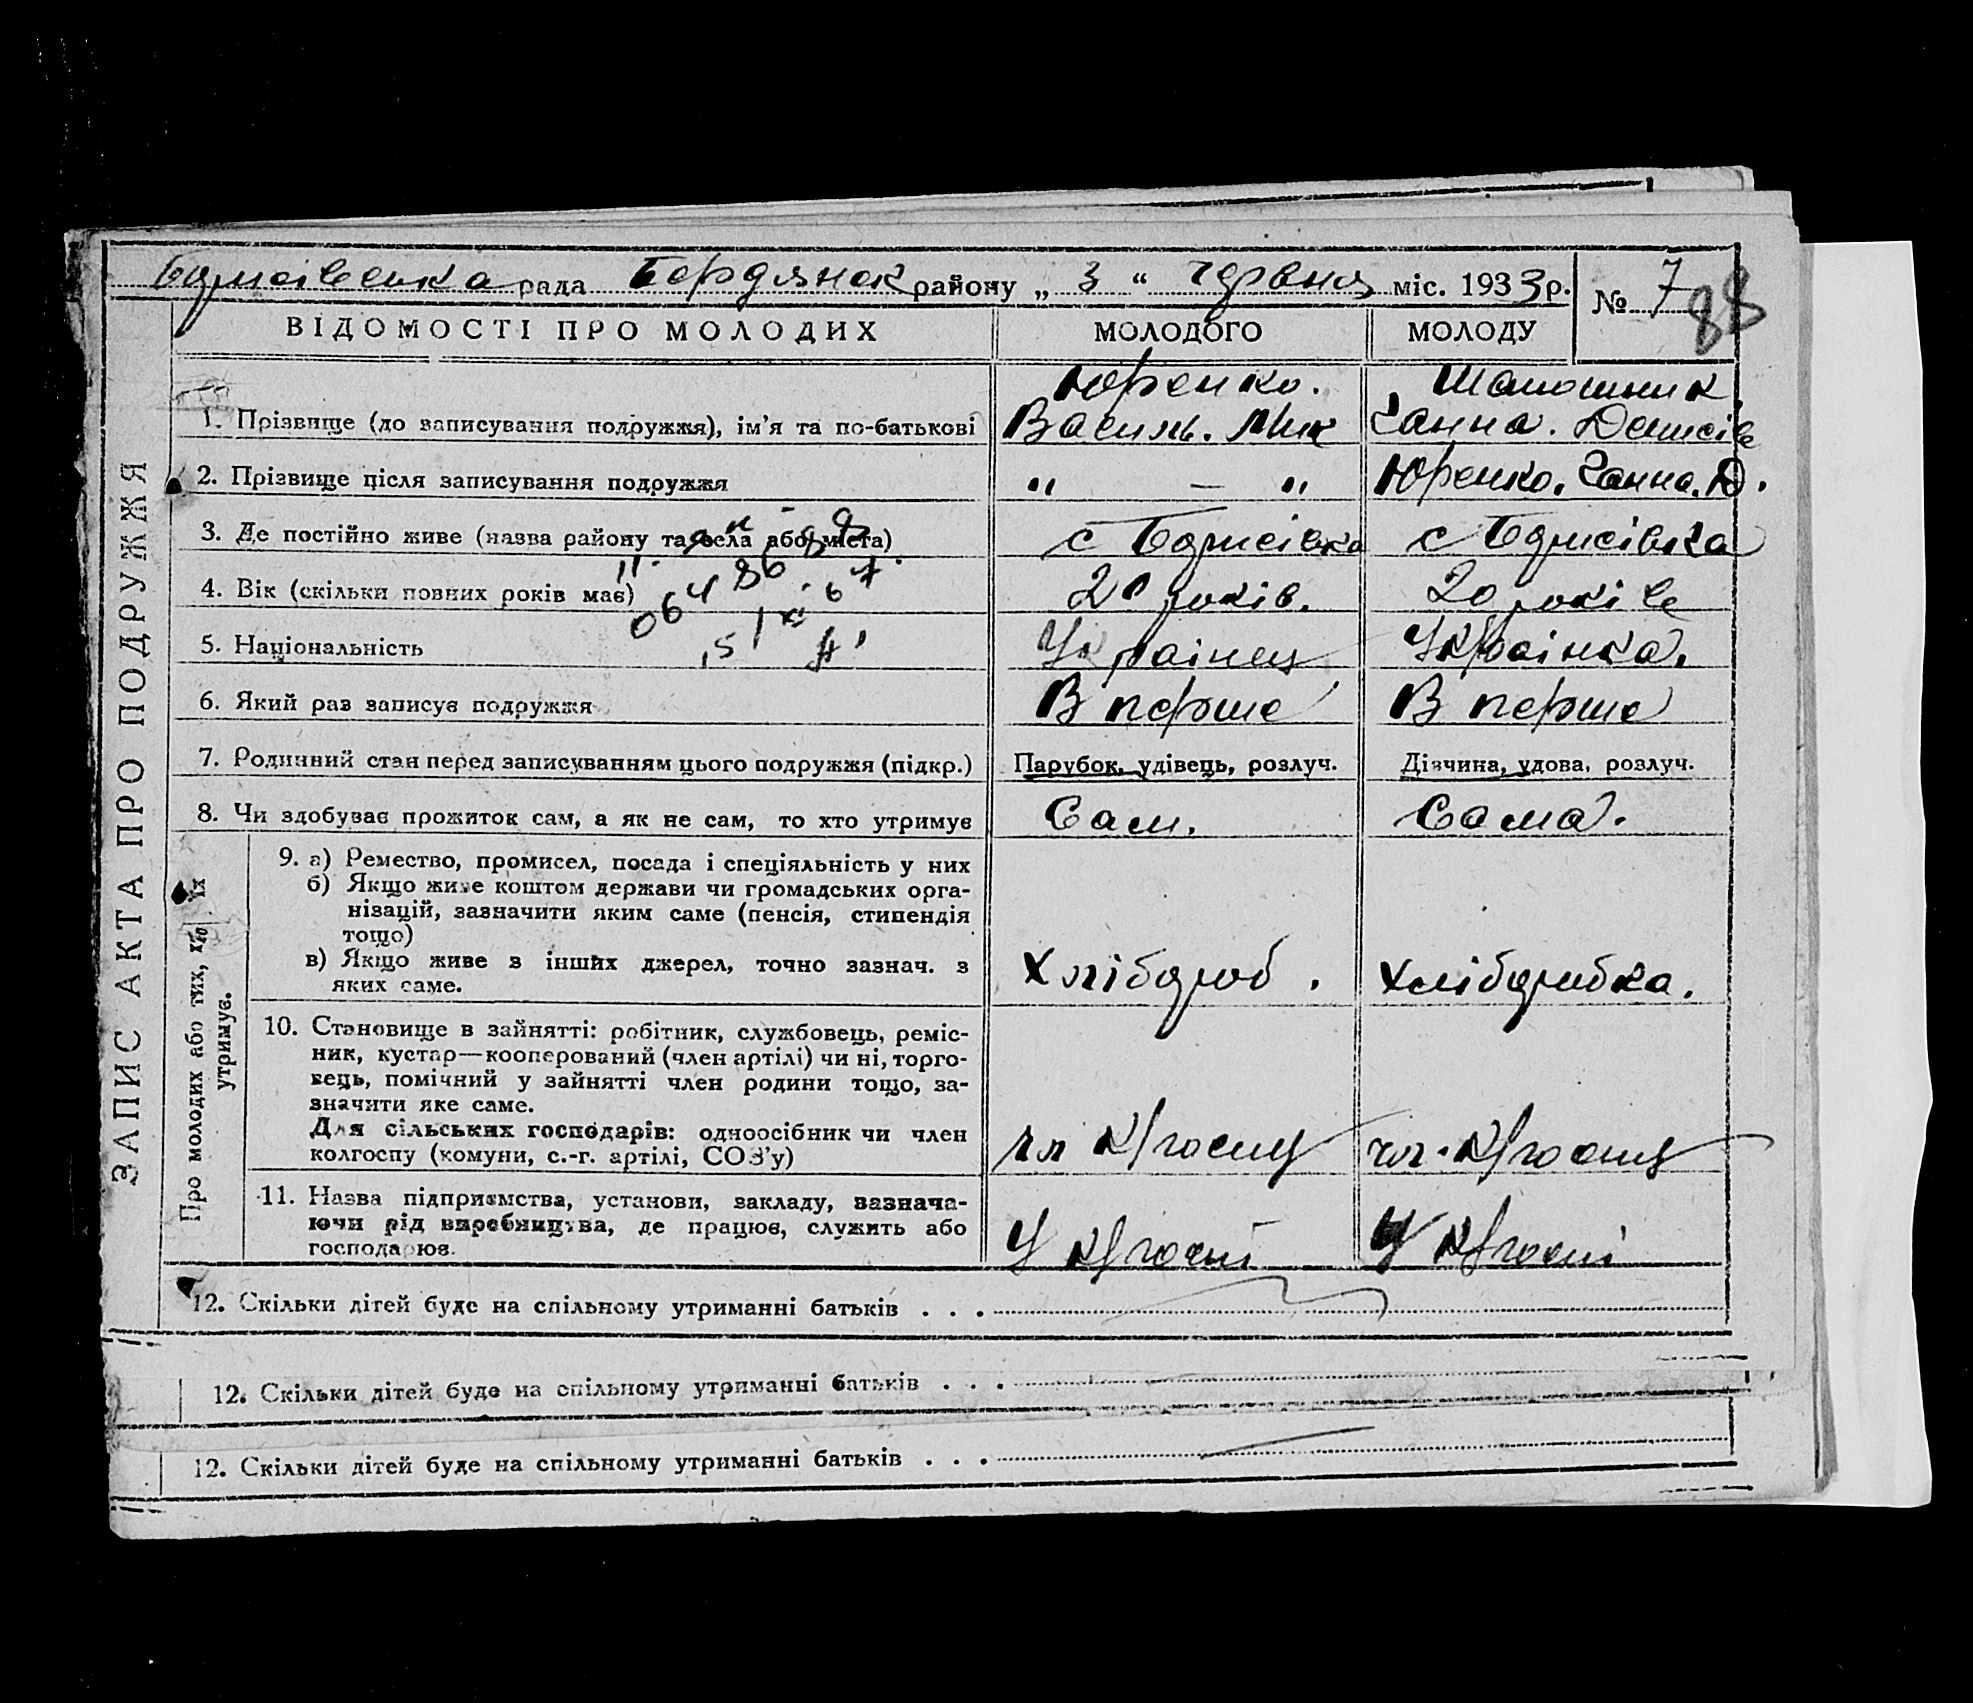 Борисівська рада Бердянськ району „ 3 “ червня міс. 1933 р. № 7
88
ВІДОМОСТІ ПРО МОЛОДИХ МОЛОДОГО МОЛОДУ
ЗАПИС АКТА ПРО ПОДРУЖЖЯ
Юренко. Шапошник
1. Прізвище (до записування подружжя), ім'я та по-батькові Василь. Мик Ганна. Денисів
2. Прізвище після записування подружжя " — " Юренко. Ганна. Д.
3. Де постійно живе (назва району та села або міста) с Борисівка с Борисівка
4. Вік (скільки повних років має) 20 років. 20 років
5. Національність Українец Українка.
6. Який раз записує подружжя В перше В перше
7. Родинний стан перед записуванням цього подружжя (підкр.) Парубок, удівець, розлуч. Дівчина, удова, розлуч.
8. Чи здобуває прожиток сам, а як не сам, то хто утримує Сам. Сама.
Про молодих або тих, хто їх утримує.
9. а) Ремество, промисел, посада і спеціяльність у них
б) Якщо живе коштом держави чи громадських орга-
нізацій, зазначити яким саме (пенсія, стипендія
тощо)
в) Якщо живе з інших джерел, точно зазнач. з
яких саме.
Хлібороб. Хліборобка.
10. Становище в зайнятті: робітник, службовець, реміс-
ник, кустар—кооперований (член артілі) чи ні, торго-
вець, помічний у зайнятті член родини тощо, за-
значити яке саме.
Для сільських господарів: одноосібник чи член
колгоспу (комуни, с.-г. артілі, СОЗ'у)
чл к/госпу чл. к/госпу
11. Назва підприємства, установи, закладу, зазнача-
ючи рід виробництва, де працює, служить або
господарює.
У к/госпі У к/госпі
12. Скільки дітей буде на спільному утриманні батьків . . .
12. Скільки дітей буде на спільному утриманні батьків . . .
12. Скільки дітей буде на спільному утриманні батьків . . .